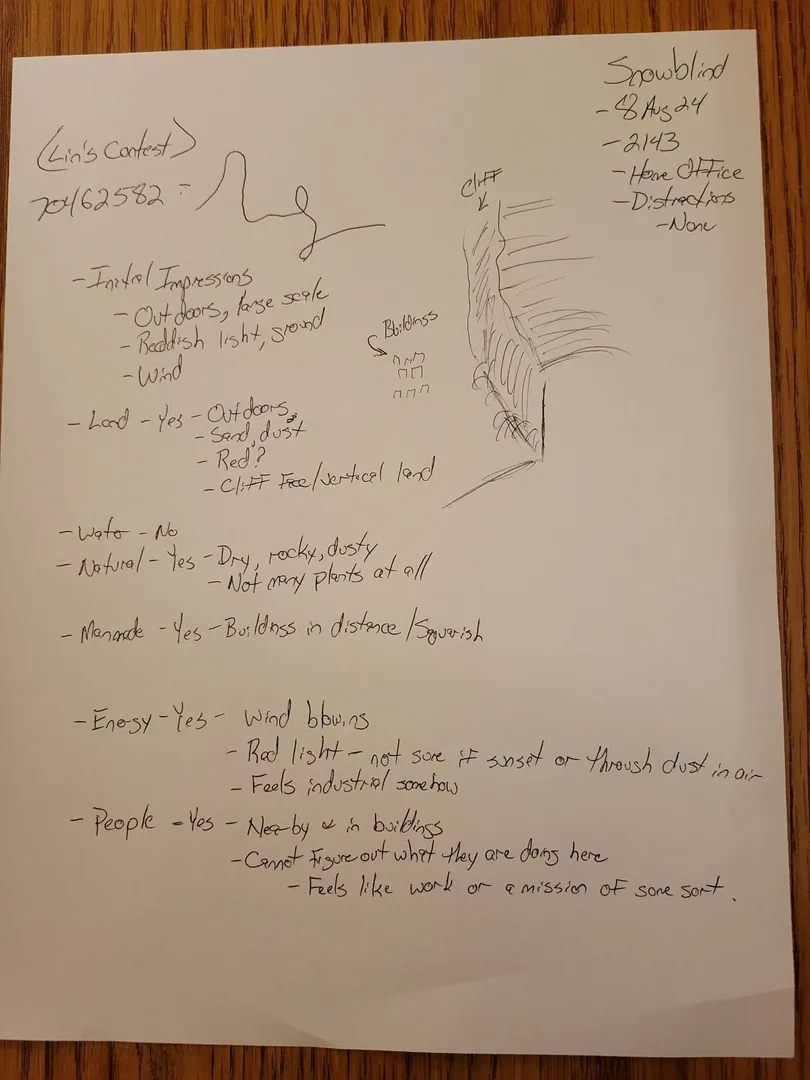 Snowblind
- 8 Aug 24
- 2143
- Home Office
- Distractions
- None
(Lin's Contest)
70462582 =
Cliff
Buildings
- Initial Impressions
- Outdoors, large scale
- Reddish light, ground
- Wind
- Land - Yes - Outdoors,
- Sand, dust
- Red?
- Cliff Face/vertical land
- Water - No
- Natural - Yes - Dry, rocky, dusty
- Not many plants at all
- Manmade - Yes - Buildings in distance/Squarish
- Energy - Yes - Wind blowing
- Red light - not sure if sunset or through dust in air
- Feels industrial somehow
- People - Yes - Nearby & in buildings
- Cannot figure out what they are doing here
- Feels like work or a mission of some sort.